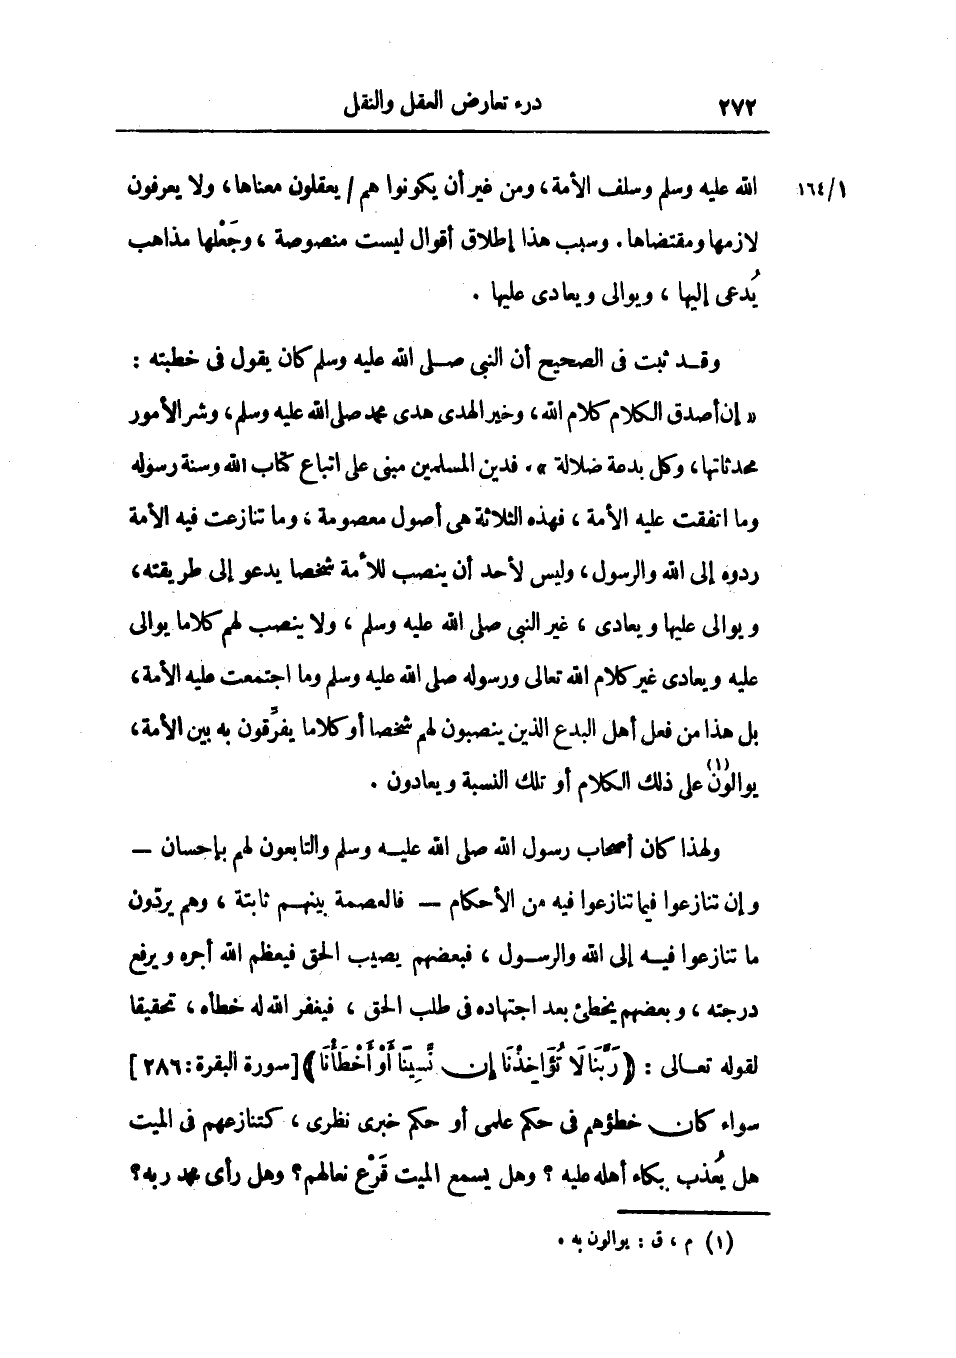 ٢٧٢ درء تعارض العقل والنقل
١/١٦٤ الله عليه وسلم وسلف الأمة، ومن غير أن يكونوا هم / يعقلون معناها، ولا يعرفون
لازمها ومقتضاها. وسبب هذا إطلاق أقوال ليست منصوصة، وجَعْلها مذاهب
يُدعى إليها، ويوالى ويعادى عليها.
وقد ثبت فى الصحيح أن النبى صلى الله عليه وسلم كان يقول فى خطبته:
« إن أصدق الكلام كلام الله، وخير الهدى هدى محمد صلى الله عليه وسلم، وشر الأمور
محدثاتها، وكل بدعة ضلالة ». فدين المسلمين مبنى على اتباع كتاب الله وسنة رسوله
وما اتفقت عليه الأمة، فهذه الثلاثة هى أصول معصومة، وما تنازعت فيه الأمة
ردوه إلى الله والرسول، وليس لأحد أن ينصب للأمة شخصا يدعو إلى طريقته،
ويوالى عليها ويعادى، غير النبى صلى الله عليه وسلم، ولا ينصب لهم كلاما يوالى
عليه ويعادى غير كلام الله تعالى ورسوله صلى الله عليه وسلم وما اجتمعت عليه الأمة،
بل هذا من فعل أهل البدع الذين ينصبون لهم شخصا أو كلاما يفرِّقون به بين الأمة،
يوالون(١) على ذلك الكلام أو تلك النسبة ويعادون.
ولهذا كان أصحاب رسول الله صلى الله عليه وسلم والتابعون لهم بإحسان —
وإن تنازعوا فيما تنازعوا فيه من الأحكام — فالعصمة بينهم ثابتة، وهم يردّون
ما تنازعوا فيه إلى الله والرسول، فبعضهم يصيب الحق فيعظم الله أجره ويرفع
درجته، وبعضهم يخطئ بعد اجتهاده فى طلب الحق، فيغفر الله له خطأه، تحقيقا
لقوله تعالى: ﴿رَبَّنَا لَا تُؤَاخِذْنَا إِن نَّسِينَا أَوْ أَخْطَأْنَا﴾ [سورة البقرة: ٢٨٦]
سواء كان خطؤهم فى حكم علمى أو حكم خبرى نظرى، كتنازعهم فى الميت
هل يُعذب ببكاء أهله عليه؟ وهل يسمع الميت قَرْع نعالهم؟ وهل رأى محمد ربه؟
(١) م، ق: يوالون به.